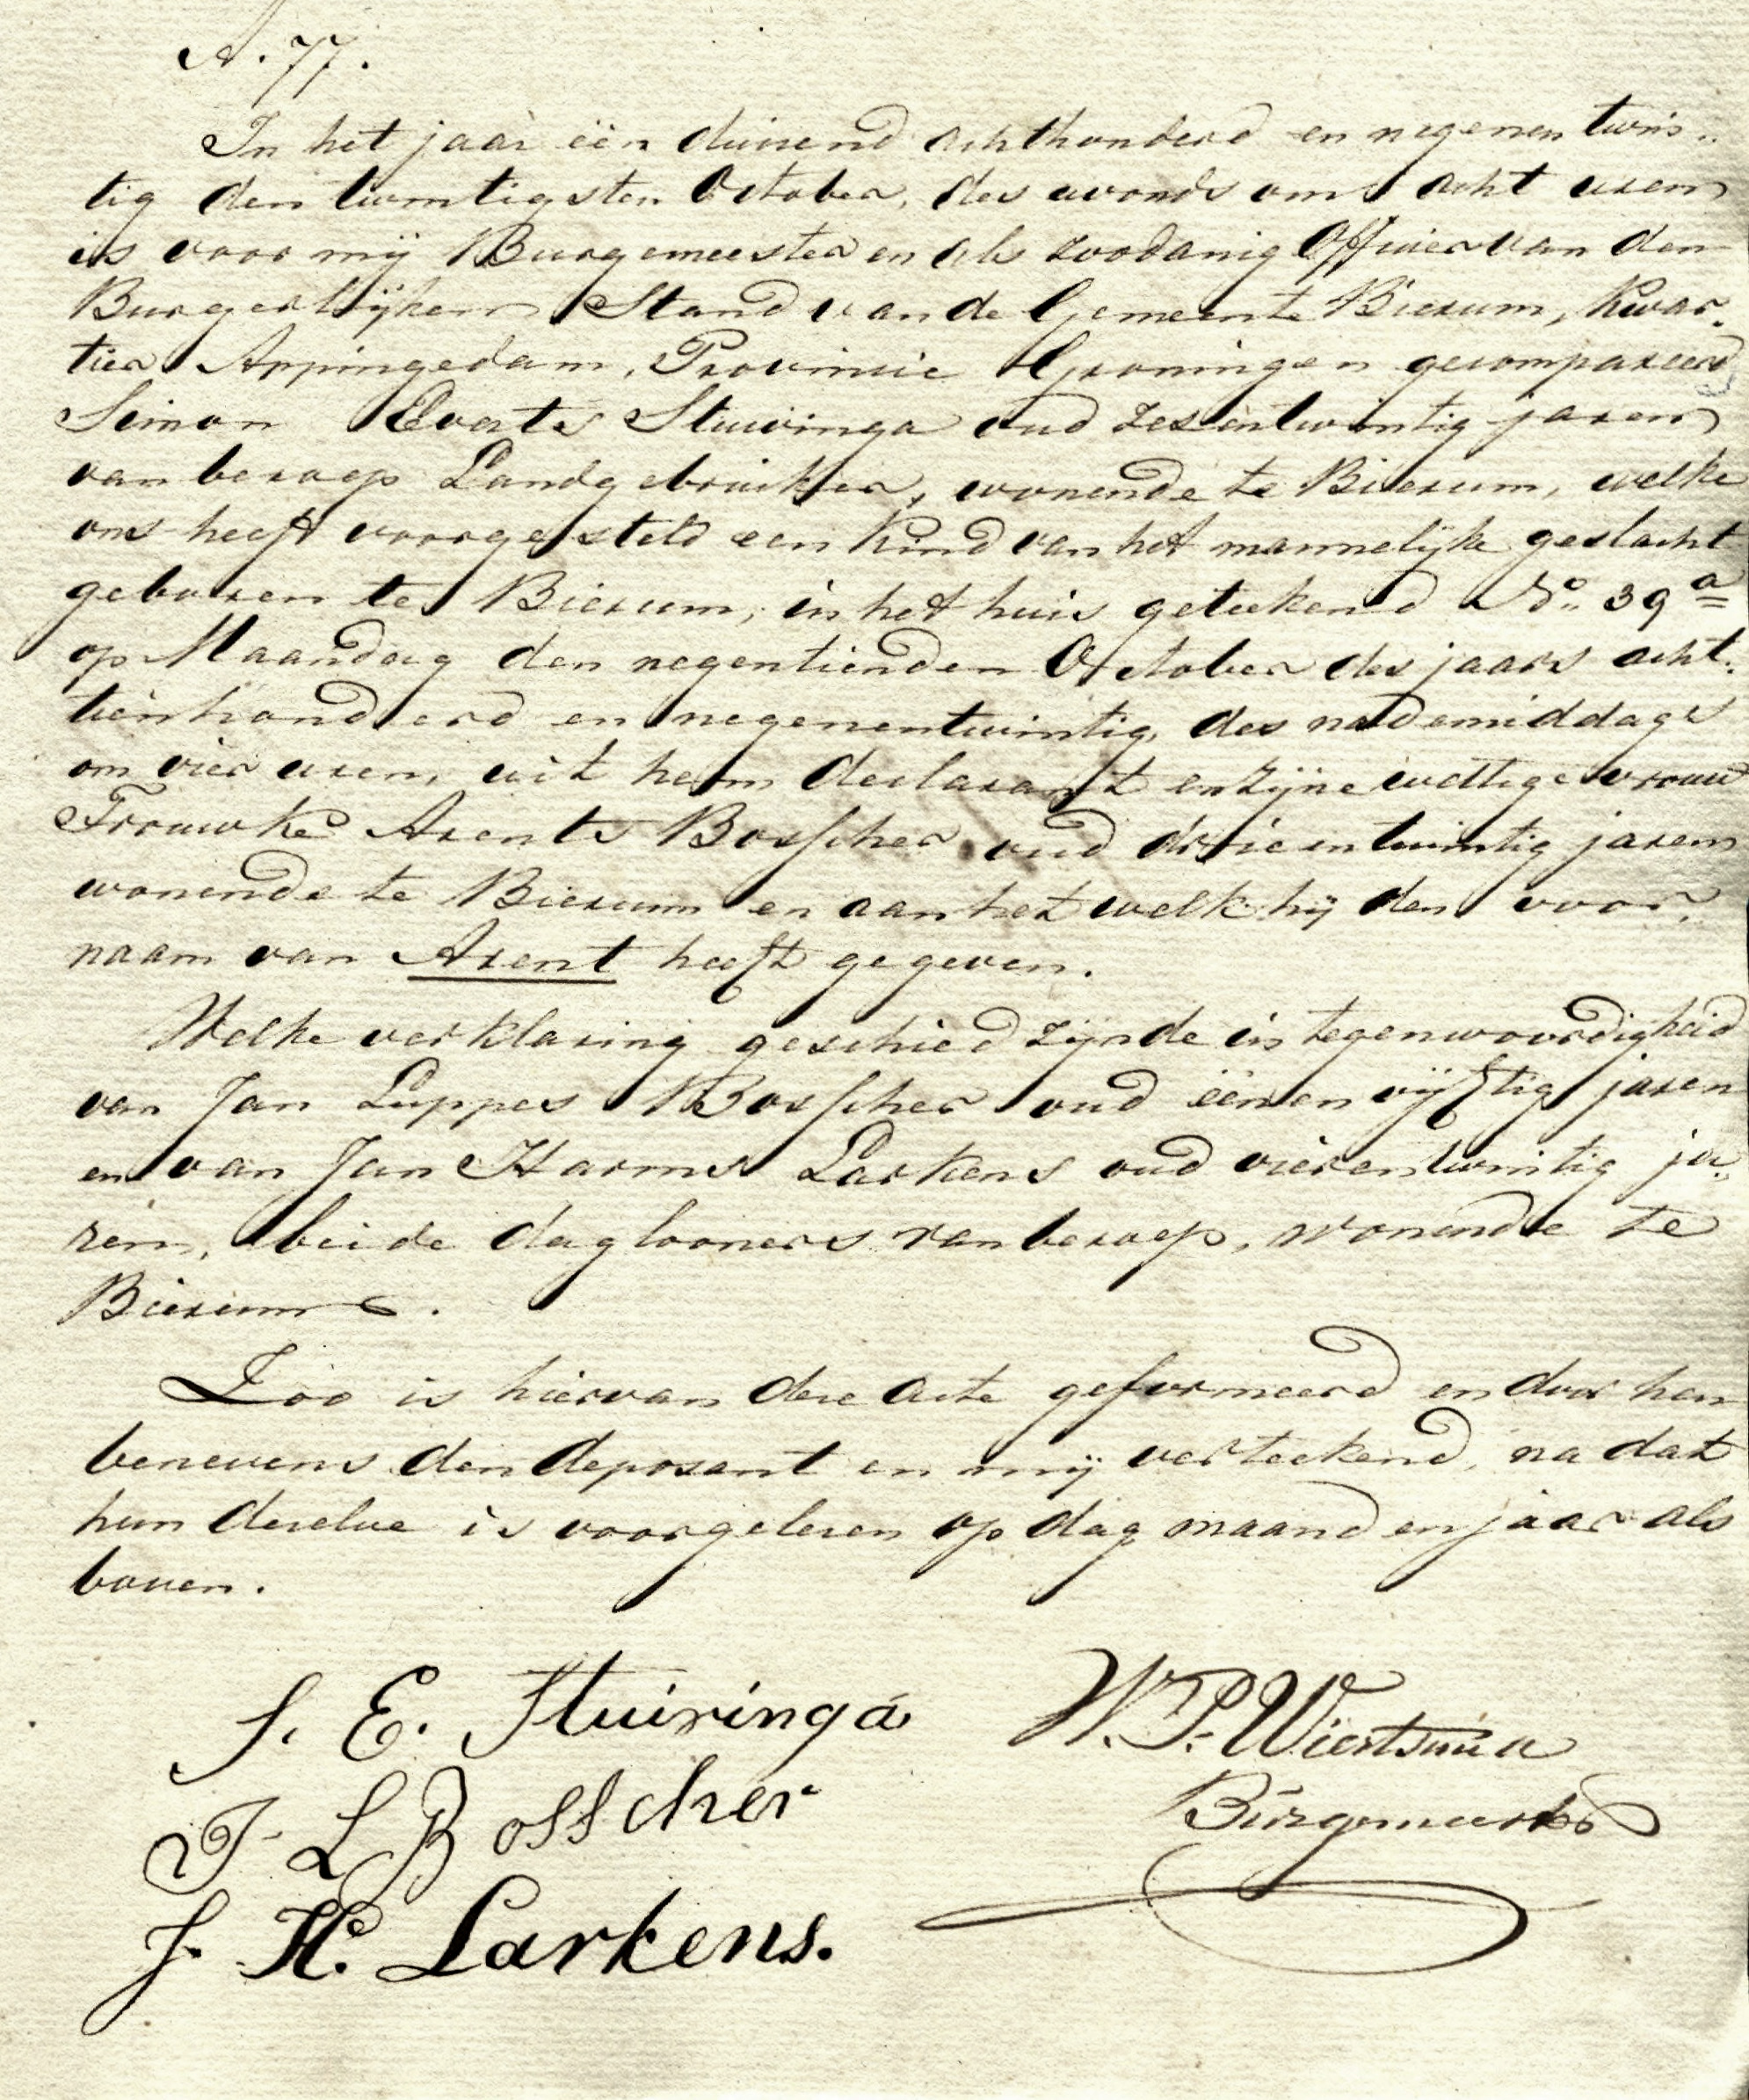 N. 77.
In het jaar één duizend achthonderd en negenentwin-
tig den twintigsten October, des avonds om acht uren
is voor mij Burgemeester en als zoodanig Officier van den
Burgerlijken Stand van de Gemeente Bierum, Kwar-
tier Appingedam, Provincie Groningen gecompareerd
Simon Everts Stuivinga oud zesentwintig jaren
van beroep Landgebruiker, wonende te Bierum, welke
ons heeft voorgesteld een kind van het mannelijke geslacht
geboren te Bierum, in het huis geteekend No. 39a
op Maandag den negentienden October des jaars acht-
tienhonderd en negenentwintig, des nademiddags
om vier uren, uit hem declarant en zijne wettige vrouw
Trouwke Arents Bosscher oud drieentwintig jaren
wonende te Bierum en aan het welk hij den voor-
naam van Arent heeft gegeven.
Welke verklaring geschied zijnde in tegenwoordigheid
van Jan Luppes Bosscher oud éénenvijftig jaren
en van Jan Harms Larkens oud vierentwintig ja-
ren, beide daglooners van beroep, wonende te
Bierum.
Zoo is hiervan deze acte geformeerd en door hen
benevens den deposant en mij verteekend, na dat
hun dezelve is voorgelezen op dag maand en jaar als
boven.
S. E. Stuivinga
W. P. Wiertsema
Burgemeester
J. L. Bosscher
J. H. Larkens.